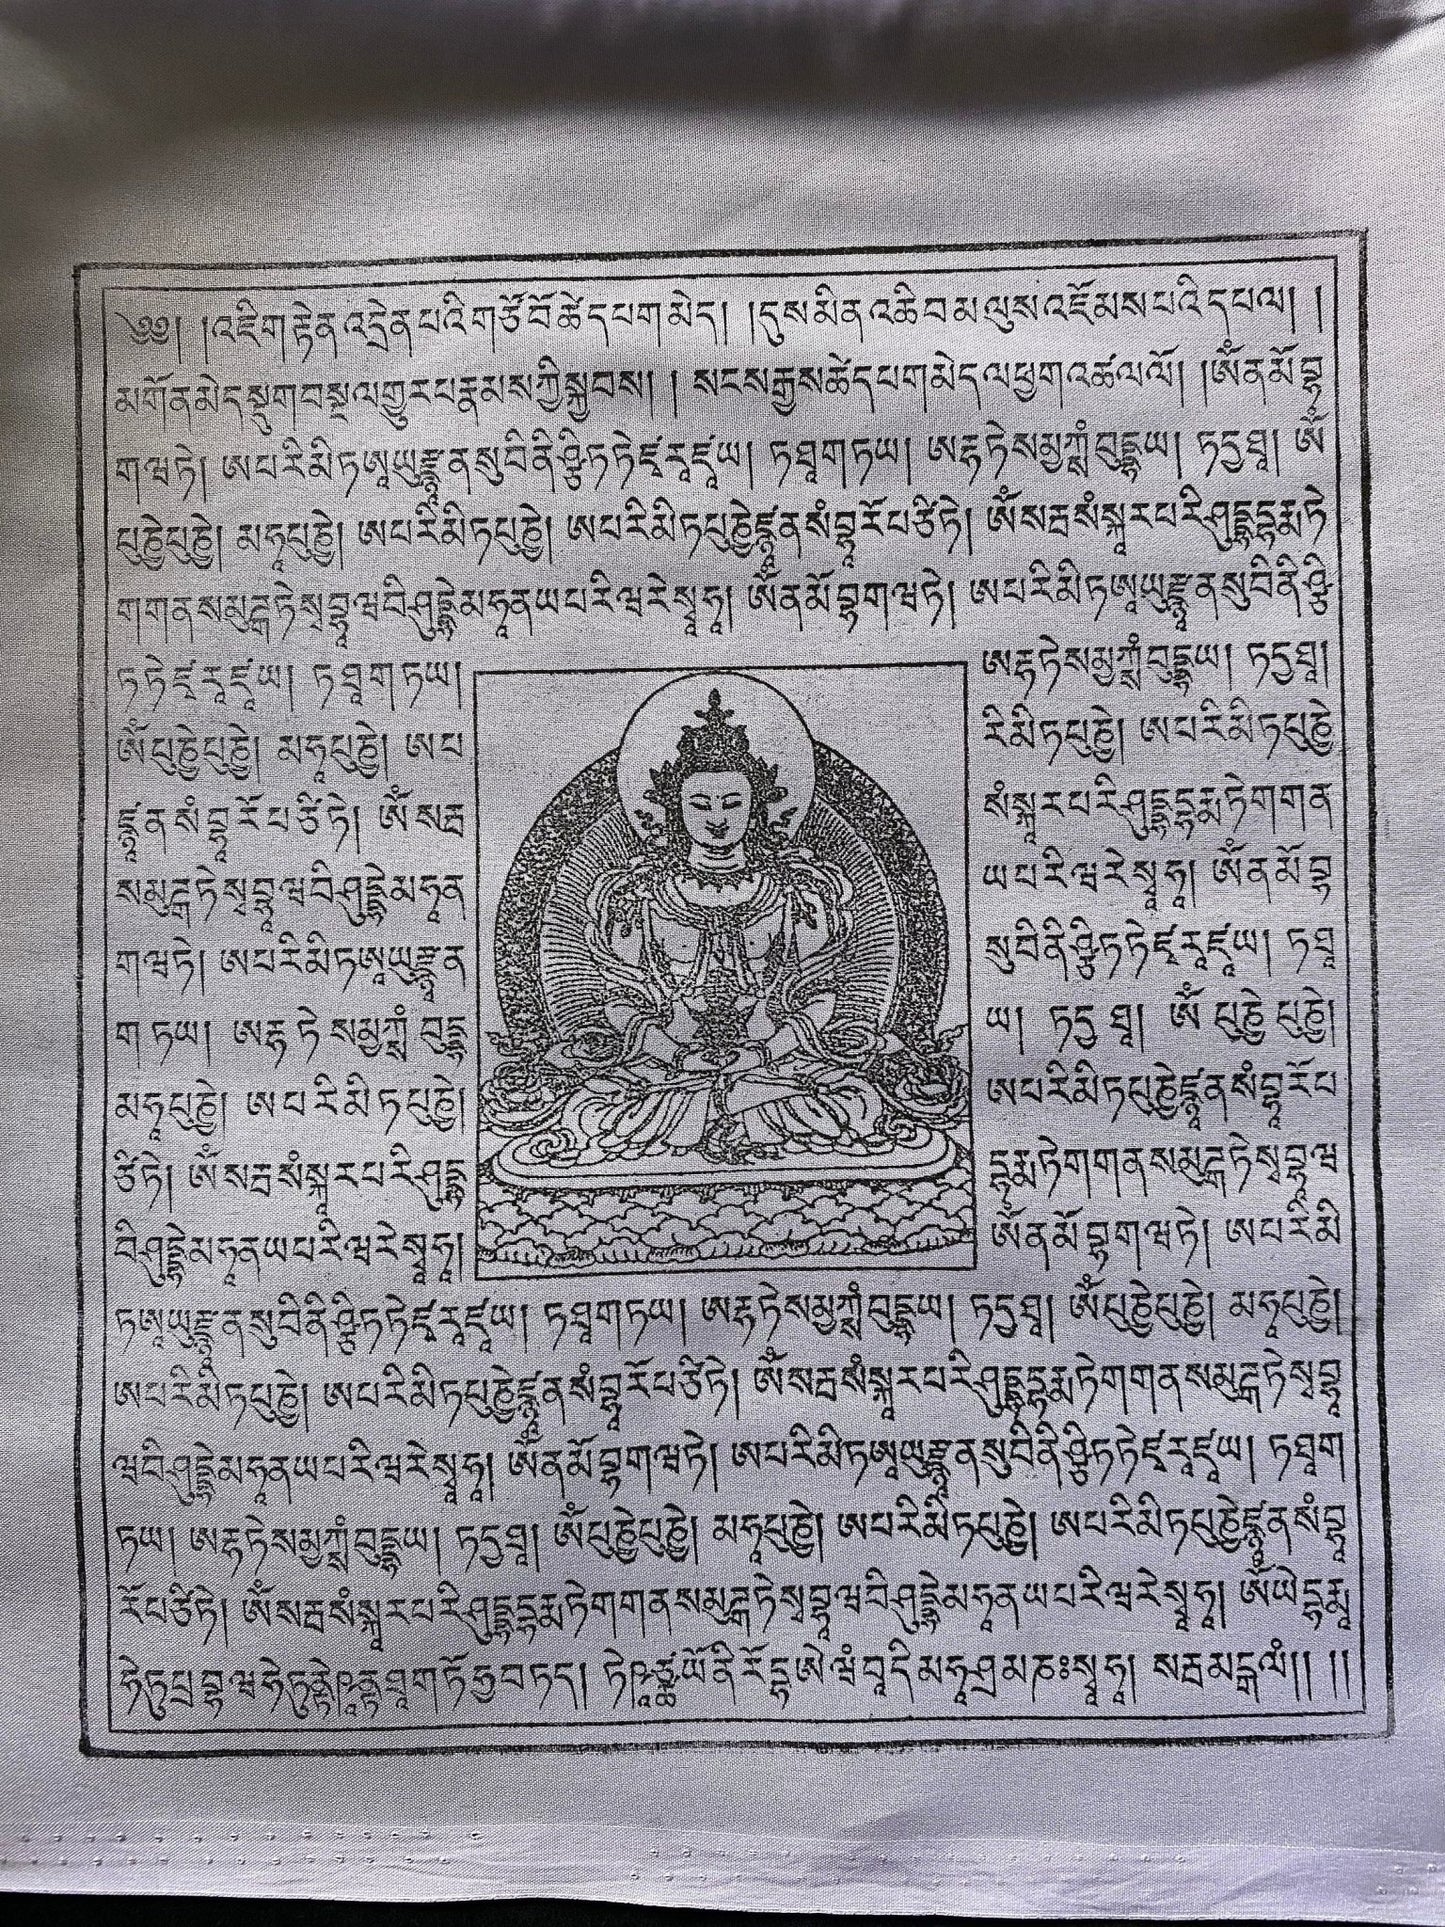 ༄༅། །འཇིག་རྟེན་འདྲེན་པའི་གཙོ་བོ་ཚེ་དཔག་མེད། །དུས་མིན་འཆི་བ་མ་ལུས་འཇོམས་པའི་དཔལ། །
མགོན་མེད་སྡུག་བསྔལ་གྱུར་པ་རྣམས་ཀྱི་སྐྱབས། །སངས་རྒྱས་ཚེ་དཔག་མེད་ལ་ཕྱག་འཚལ་ལོ། །ཨོཾ་ན་མོ་བྷ་
ག་ཝ་ཏེ། ཨ་པ་རི་མི་ཏ་ཨཱ་ཡུརྫྙཱ་ན་སུ་བི་ནི་ཤྩི་ཏ་ཏེ་ཛོ་རཱ་ཛཱ་ཡ། ཏ་ཐཱ་ག་ཏཱ་ཡ། ཨརྷ་ཏེ་སམྱཀྶཾ་བུདྡྷཱ་ཡ། ཏདྱ་ཐཱ། ཨོཾ་
པུཎྱེ་པུཎྱེ། མ་ཧཱ་པུཎྱེ། ཨ་པ་རི་མི་ཏ་པུཎྱེ། ཨ་པ་རི་མི་ཏ་པུཎྱེ་ཛྙཱ་ན་སཾ་བྷཱ་རོ་པ་ཙི་ཏེ། ཨོཾ་སརྦ་སཾ་སྐཱ་ར་པ་རི་ཤུདྡྷ་དྷརྨ་ཏེ་
ག་ག་ན་ས་མུདྒ་ཏེ་སྭ་བྷཱ་ཝ་བི་ཤུདྡྷེ་མ་ཧཱ་ན་ཡ་པ་རི་ཝ་རེ་སྭཱ་ཧཱ། ཨོཾ་ན་མོ་བྷ་ག་ཝ་ཏེ། ཨ་པ་རི་མི་ཏ་ཨཱ་ཡུརྫྙཱ་ན་སུ་བི་ནི་ཤྩི་
ཏ་ཏེ་ཛོ་རཱ་ཛཱ་ཡ། ཏ་ཐཱ་ག་ཏཱ་ཡ། ཨརྷ་ཏེ་སམྱཀྶཾ་བུདྡྷཱ་ཡ། ཏདྱ་ཐཱ།
ཨོཾ་པུཎྱེ་པུཎྱེ། མ་ཧཱ་པུཎྱེ། ཨ་པ་ རི་མི་ཏ་པུཎྱེ། ཨ་པ་རི་མི་ཏ་པུཎྱེ་
ཛྙཱ་ན་སཾ་བྷཱ་རོ་པ་ཙི་ཏེ། ཨོཾ་སརྦ་ སཾ་སྐཱ་ར་པ་རི་ཤུདྡྷ་དྷརྨ་ཏེ་ག་ག་ན་
ས་མུདྒ་ཏེ་སྭ་བྷཱ་ཝ་བི་ཤུདྡྷེ་མ་ཧཱ་ན་ ཡ་པ་རི་ཝ་རེ་སྭཱ་ཧཱ། ཨོཾ་ན་མོ་བྷ་
ག་ཝ་ཏེ། ཨ་པ་རི་མི་ཏ་ཨཱ་ཡུརྫྙཱ་ན་ སུ་བི་ནི་ཤྩི་ཏ་ཏེ་ཛོ་རཱ་ཛཱ་ཡ། ཏ་ཐཱ་
ག་ཏཱ་ཡ། ཨརྷ་ཏེ་སམྱཀྶཾ་བུདྡྷཱ་ ཡ། ཏདྱ་ཐཱ། ཨོཾ་པུཎྱེ་པུཎྱེ།
མ་ཧཱ་པུཎྱེ། ཨ་པ་རི་མི་ཏ་པུཎྱེ། ཨ་པ་རི་མི་ཏ་པུཎྱེ་ཛྙཱ་ན་སཾ་བྷཱ་རོ་པ་
ཙི་ཏེ། ཨོཾ་སརྦ་སཾ་སྐཱ་ར་པ་རི་ཤུདྡྷ་ དྷརྨ་ཏེ་ག་ག་ན་ས་མུདྒ་ཏེ་སྭ་བྷཱ་ཝ་
བི་ཤུདྡྷེ་མ་ཧཱ་ན་ཡ་པ་རི་ཝ་རེ་སྭཱ་ཧཱ། ཨོཾ་ན་མོ་བྷ་ག་ཝ་ཏེ། ཨ་པ་རི་མི་
ཏ་ཨཱ་ཡུརྫྙཱ་ན་སུ་བི་ནི་ཤྩི་ཏ་ཏེ་ཛོ་རཱ་ཛཱ་ཡ། ཏ་ཐཱ་ག་ཏཱ་ཡ། ཨརྷ་ཏེ་སམྱཀྶཾ་བུདྡྷཱ་ཡ། ཏདྱ་ཐཱ། ཨོཾ་པུཎྱེ་པུཎྱེ། མ་ཧཱ་པུཎྱེ།
ཨ་པ་རི་མི་ཏ་པུཎྱེ། ཨ་པ་རི་མི་ཏ་པུཎྱེ་ཛྙཱ་ན་སཾ་བྷཱ་རོ་པ་ཙི་ཏེ། ཨོཾ་སརྦ་སཾ་སྐཱ་ར་པ་རི་ཤུདྡྷ་དྷརྨ་ཏེ་ག་ག་ན་ས་མུདྒ་ཏེ་སྭ་བྷཱ་
ཝ་བི་ཤུདྡྷེ་མ་ཧཱ་ན་ཡ་པ་རི་ཝ་རེ་སྭཱ་ཧཱ། ཨོཾ་ན་མོ་བྷ་ག་ཝ་ཏེ། ཨ་པ་རི་མི་ཏ་ཨཱ་ཡུརྫྙཱ་ན་སུ་བི་ནི་ཤྩི་ཏ་ཏེ་ཛོ་རཱ་ཛཱ་ཡ། ཏ་ཐཱ་ག་
ཏཱ་ཡ། ཨརྷ་ཏེ་སམྱཀྶཾ་བུདྡྷཱ་ཡ། ཏདྱ་ཐཱ། ཨོཾ་པུཎྱེ་པུཎྱེ། མ་ཧཱ་པུཎྱེ། ཨ་པ་རི་མི་ཏ་པུཎྱེ། ཨ་པ་རི་མི་ཏ་པུཎྱེ་ཛྙཱ་ན་སཾ་བྷཱ་
རོ་པ་ཙི་ཏེ། ཨོཾ་སརྦ་སཾ་སྐཱ་ར་པ་རི་ཤུདྡྷ་དྷརྨ་ཏེ་ག་ག་ན་ས་མུདྒ་ཏེ་སྭ་བྷཱ་ཝ་བི་ཤུདྡྷེ་མ་ཧཱ་ན་ཡ་པ་རི་ཝ་རེ་སྭཱ་ཧཱ། ཨོཾ་ཡེ་དྷརྨཱ་
ཧེ་ཏུ་པྲ་བྷ་ཝ་ཧེ་ཏུནྟེ་ཥཱནྟ་ཐཱ་ག་ཏོ་ཧྱ་བ་དཏ། ཏེ་ཥཱཉྩ་ཡོ་ནི་རོ་དྷ་ཨེ་ཝཾ་བཱ་དཱི་མ་ཧཱ་ཤྲ་མ་ཎཿསྭཱ་ཧཱ། སརྦ་མངྒ་ལཾ།། །།